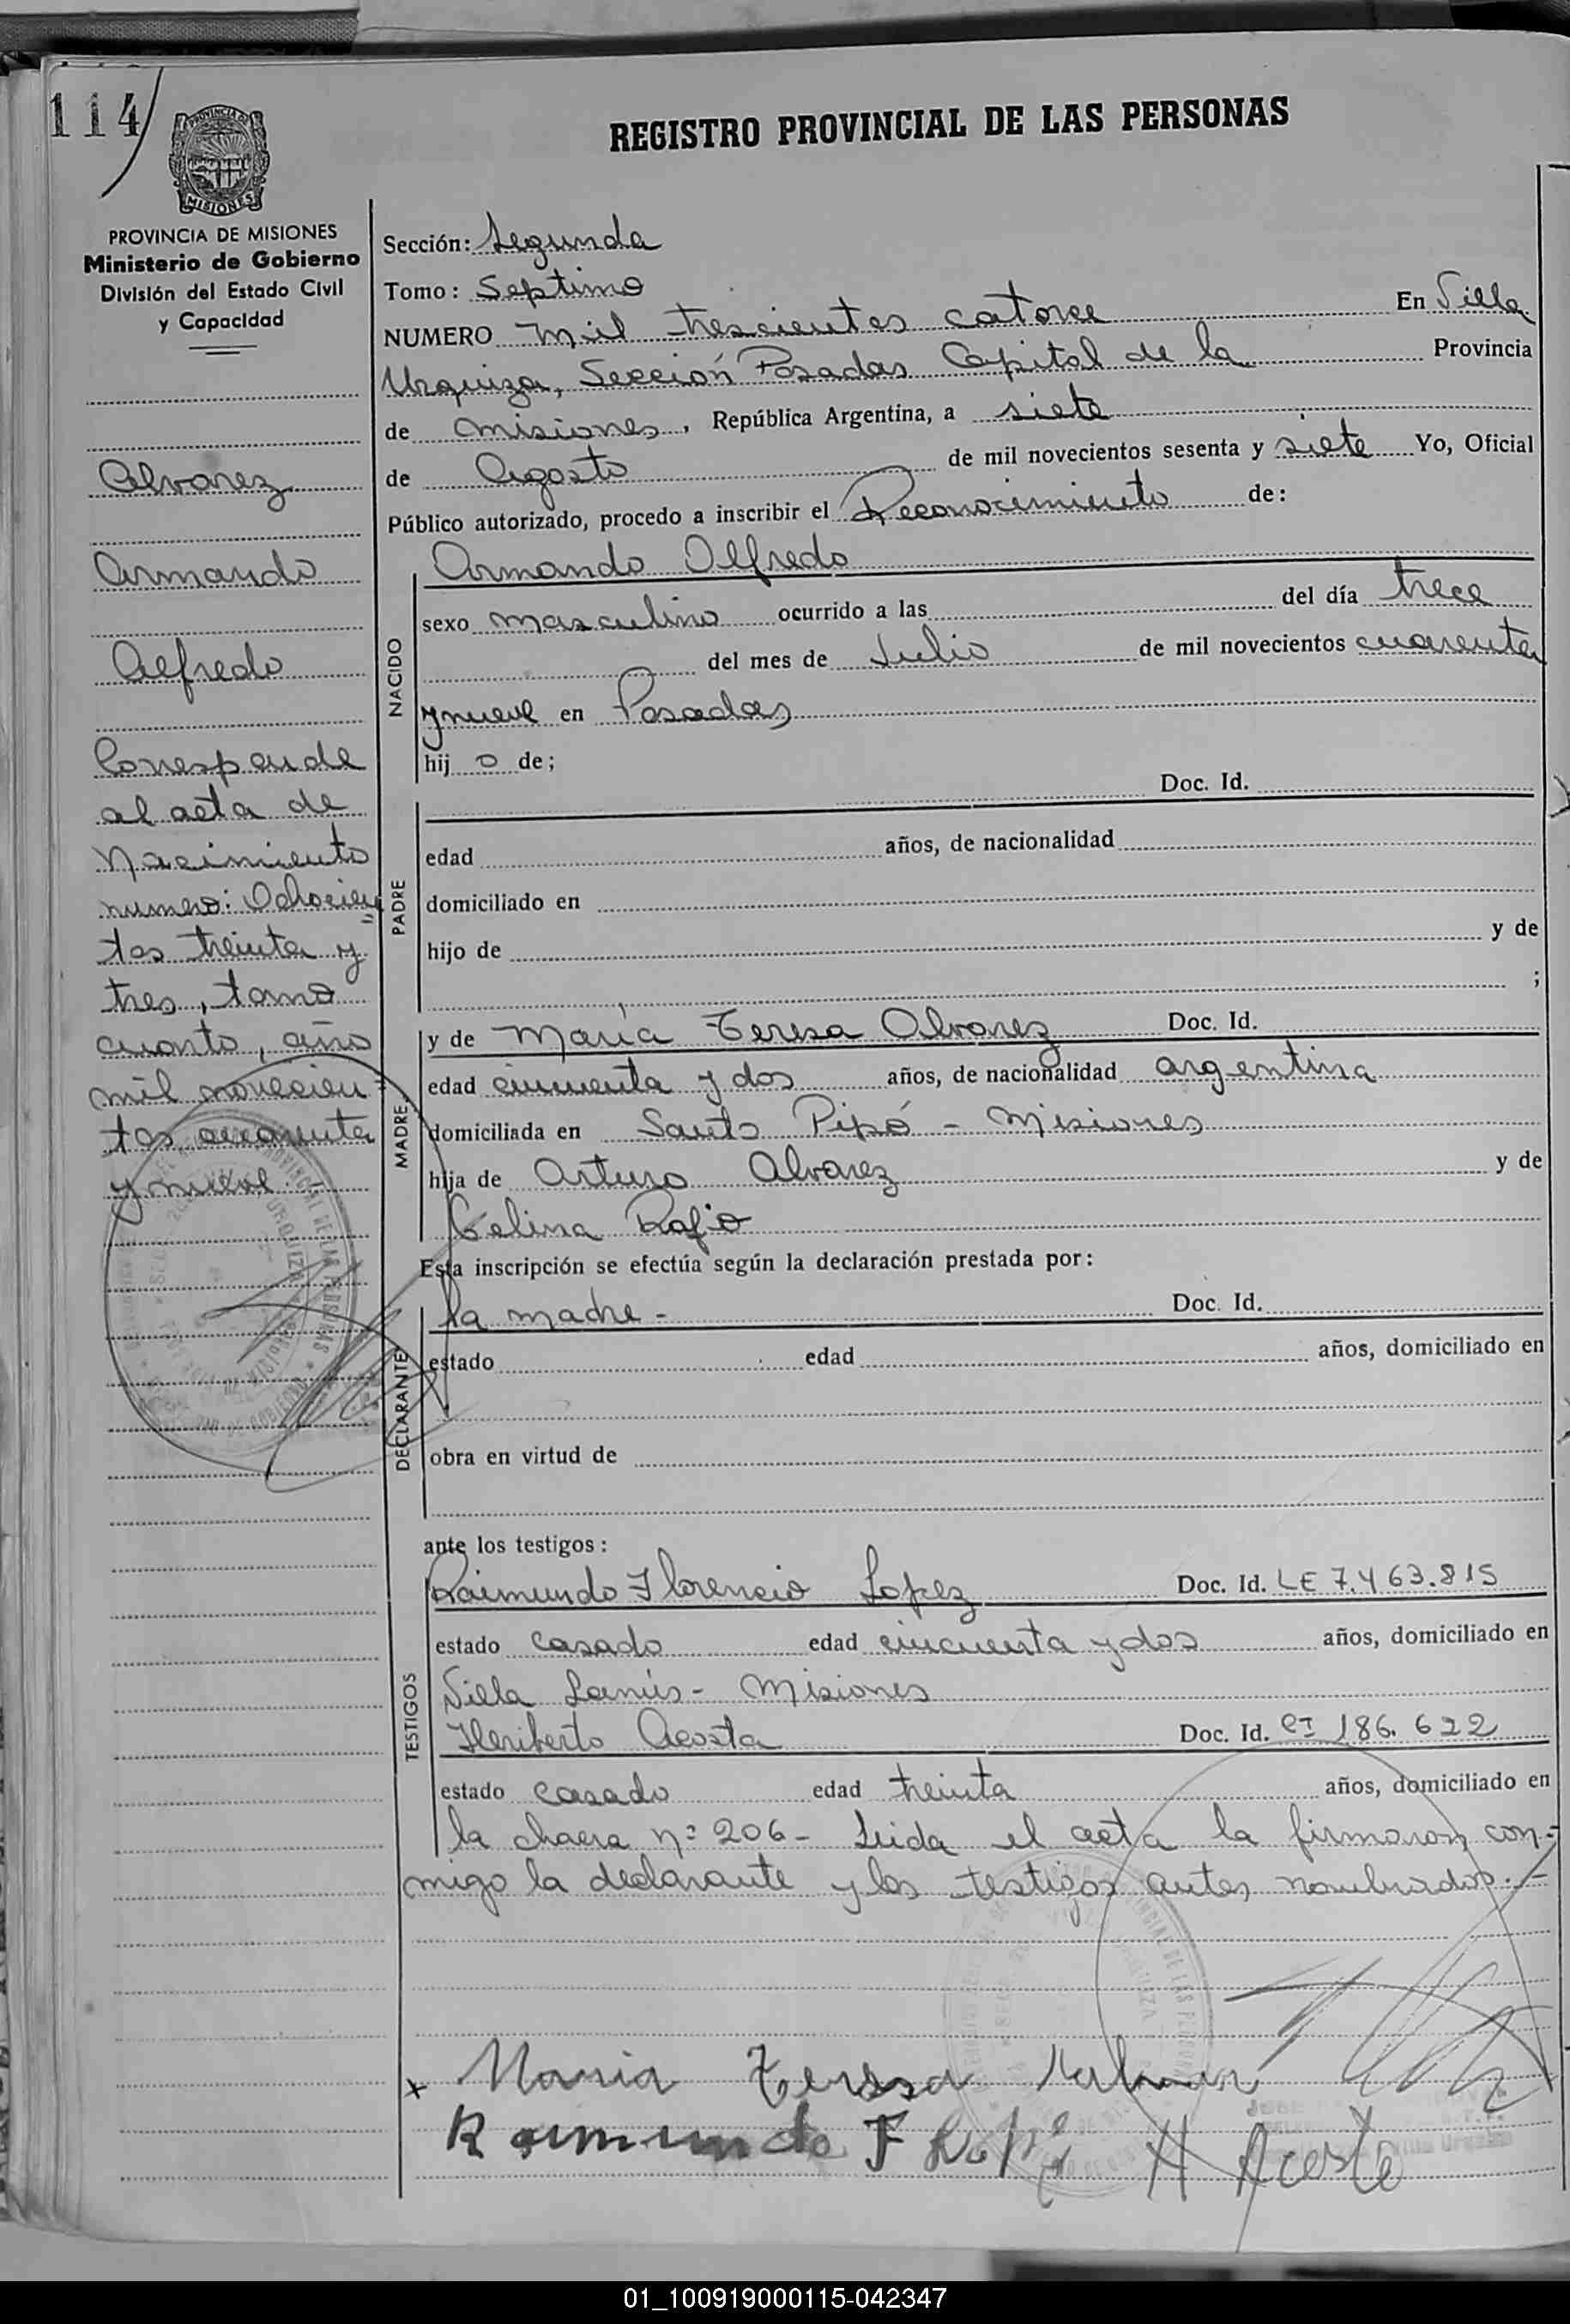 114
REGISTRO PROVINCIAL DE LAS PERSONAS
MISIONES
PROVINCIA DE MISIONES
Ministerio de Gobierno
División del Estado Civil
y Capacidad
Alvarez
Armando
Alfredo
Corresponde
al acta de
Nacimiento
numero: Ochocien=
tos treinta y
tres, tomo
cuarto, año
mil novecien=
tos cuarenta
y nueve.
Sección: Segunda
Tomo: Septimo
NUMERO mil trescientos catorce En Villa
Urquiza, Sección Posadas Capital de la Provincia
de Misiones, República Argentina, a siete
de Agosto de mil novecientos sesenta y siete Yo, Oficial
Público autorizado, procedo a inscribir el Reconocimiento de:
NACIDO
Armando Alfredo
sexo masculino ocurrido a las del día trece
del mes de Julio de mil novecientos cuarenta
y nueve en Posadas
hij o de;
PADRE
Doc. Id.
edad años, de nacionalidad
domiciliado en
hijo de y de
;
MADRE
y de María Teresa Alvarez Doc. Id.
edad cincuenta y dos años, de nacionalidad argentina
domiciliada en Santo Pipó - Misiones
hija de Arturo Alvarez y de
Celina
Esta inscripción se efectúa según la declaración prestada por:
DECLARANTE
la madre - Doc. Id.
estado edad años, domiciliado en
obra en virtud de
ante los testigos:
TESTIGOS
Raimundo Florencio Lopez Doc. Id. LE 7.463.815
estado casado edad cincuenta y dos años, domiciliado en
Villa Lanús - Misiones
Heriberto Acosta Doc. Id. CI 186.622
estado casado edad treinta años, domiciliado en
la chacra nº 206 - Leida el acta la firmaron con-
migo la declarante y los testigos antes nombrados.-
x Maria Teresa
Raimundo F Lopez H Acosta
01_100919000115-042347